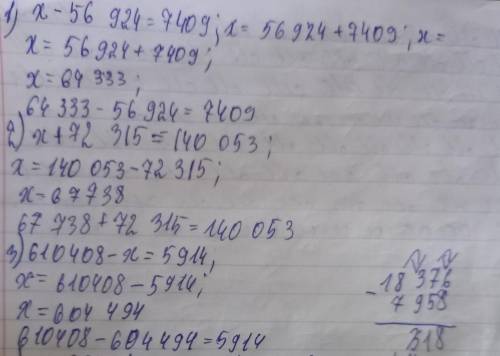 1) x-56 924=7409; x=56924+7409; x=
x=56924+7409;
x=64 333;
64 333-56 924=7409
2) x+72 315=140 053;
x=140 053-72 315;
x-67738
67 738+72 315=140 053
3) 610408-x=5914,
x=610408-5914;
x=604 494
610408-604494=5914
18 376
- 7 958
318